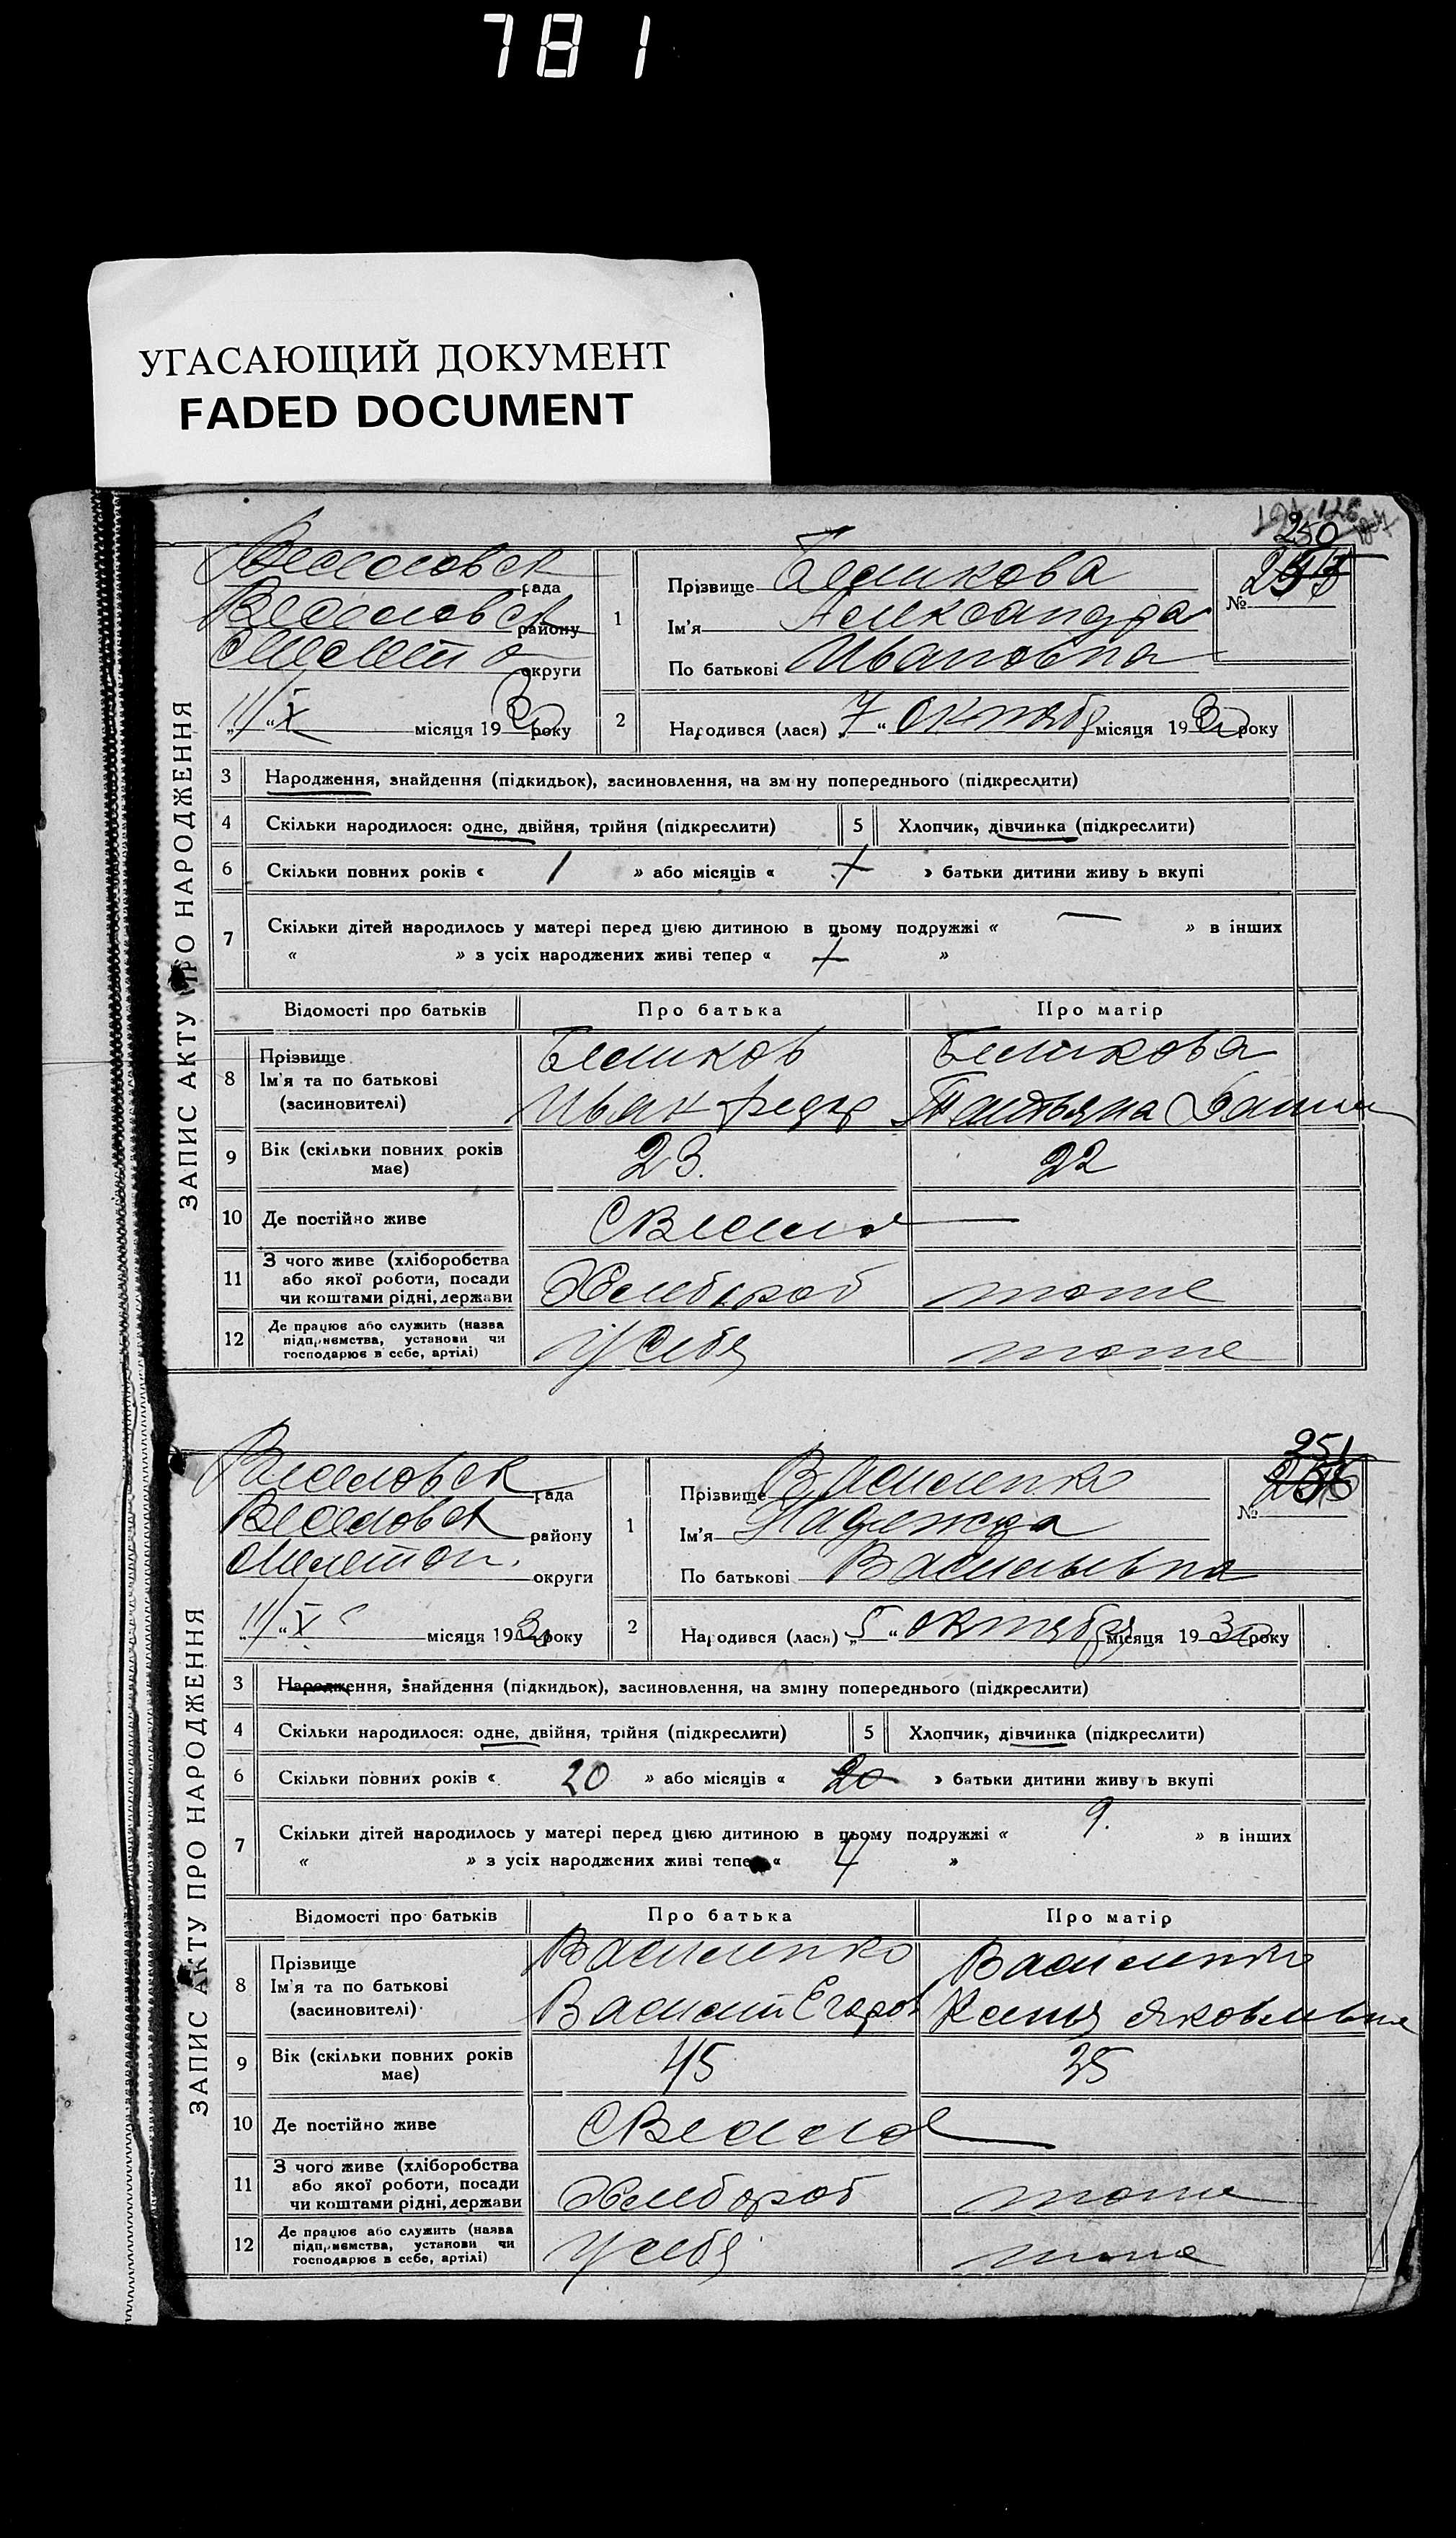 781
УГАСАЮЩИЙ ДОКУМЕНТ
FADED DOCUMENT
250
ЗАПИС АКТУ ПРО НАРОДЖЕННЯ
Веселовск рада
Веселовск району
Мелито округи
11/X місяця 1930 року
1 Прізвище Беликова
Ім'я Александра
По батькові Ивановна
№
2 Народився (лася) „7“ октябр місяця 1930 року
3 Народження, знайдення (підкидьок), засиновлення, на зм ну попереднього (підкреслити)
4 Скільки народилося: одне, двійня, трійня (підкреслити) 5 Хлопчик, дівчинка (підкреслити)
6 Скільки повних років « 1 » або місяців « » батьки дитини живу ь вкупі
7 Скільки дітей народилось у матері перед цією дитиною в цьому подружжі « — » в інших
« » з усіх народжених живі тепер « »
Відомості про батьків Про батька Про матір
8 Прізвище Беликов Беликова
Ім'я та по батькові
(засиновителі) Иван Федор Татьяна
9 Вік (скільки повних років має) 23. 22
10 Де постійно живе
11 З чого живе (хліборобства або якої роботи, посади чи коштами рідні, держави Хлебороб тоже
12 Де працює або служить (назва підприємства, установи чи господарює в себе, артілі) У себя тоже
251
ЗАПИС АКТУ ПРО НАРОДЖЕННЯ
Веселовск рада
Веселовск району
Мелитоп. округи
11/X місяця 1930 року
1 Прізвище Василенко
Ім'я Надежда
По батькові Васильевна
№
2 Народився (лася) „5“ октября місяця 1930 року
3 Народження, знайдення (підкидьок), засиновлення, на зміну попереднього (підкреслити)
4 Скільки народилося: одне, двійня, трійня (підкреслити) 5 Хлопчик, дівчинка (підкреслити)
6 Скільки повних років « 20 » або місяців « 20 » батьки дитини живу ь вкупі
7 Скільки дітей народилось у матері перед цією дитиною в цьому подружжі « 9. » в інших
« » з усіх народжених живі тепер « 4 »
Відомості про батьків Про батька Про матір
8 Прізвище Василенко Василенко
Ім'я та по батькові
(засиновителі) Василий Егоров Ксения Яковлевна
9 Вік (скільки повних років має) 45 35
10 Де постійно живе
11 З чого живе (хліборобства або якої роботи, посади чи коштами рідні, держави Хлебороб тоже
12 Де працює або служить (назва підприємства, установи чи господарює в себе, артілі) У себя тоже